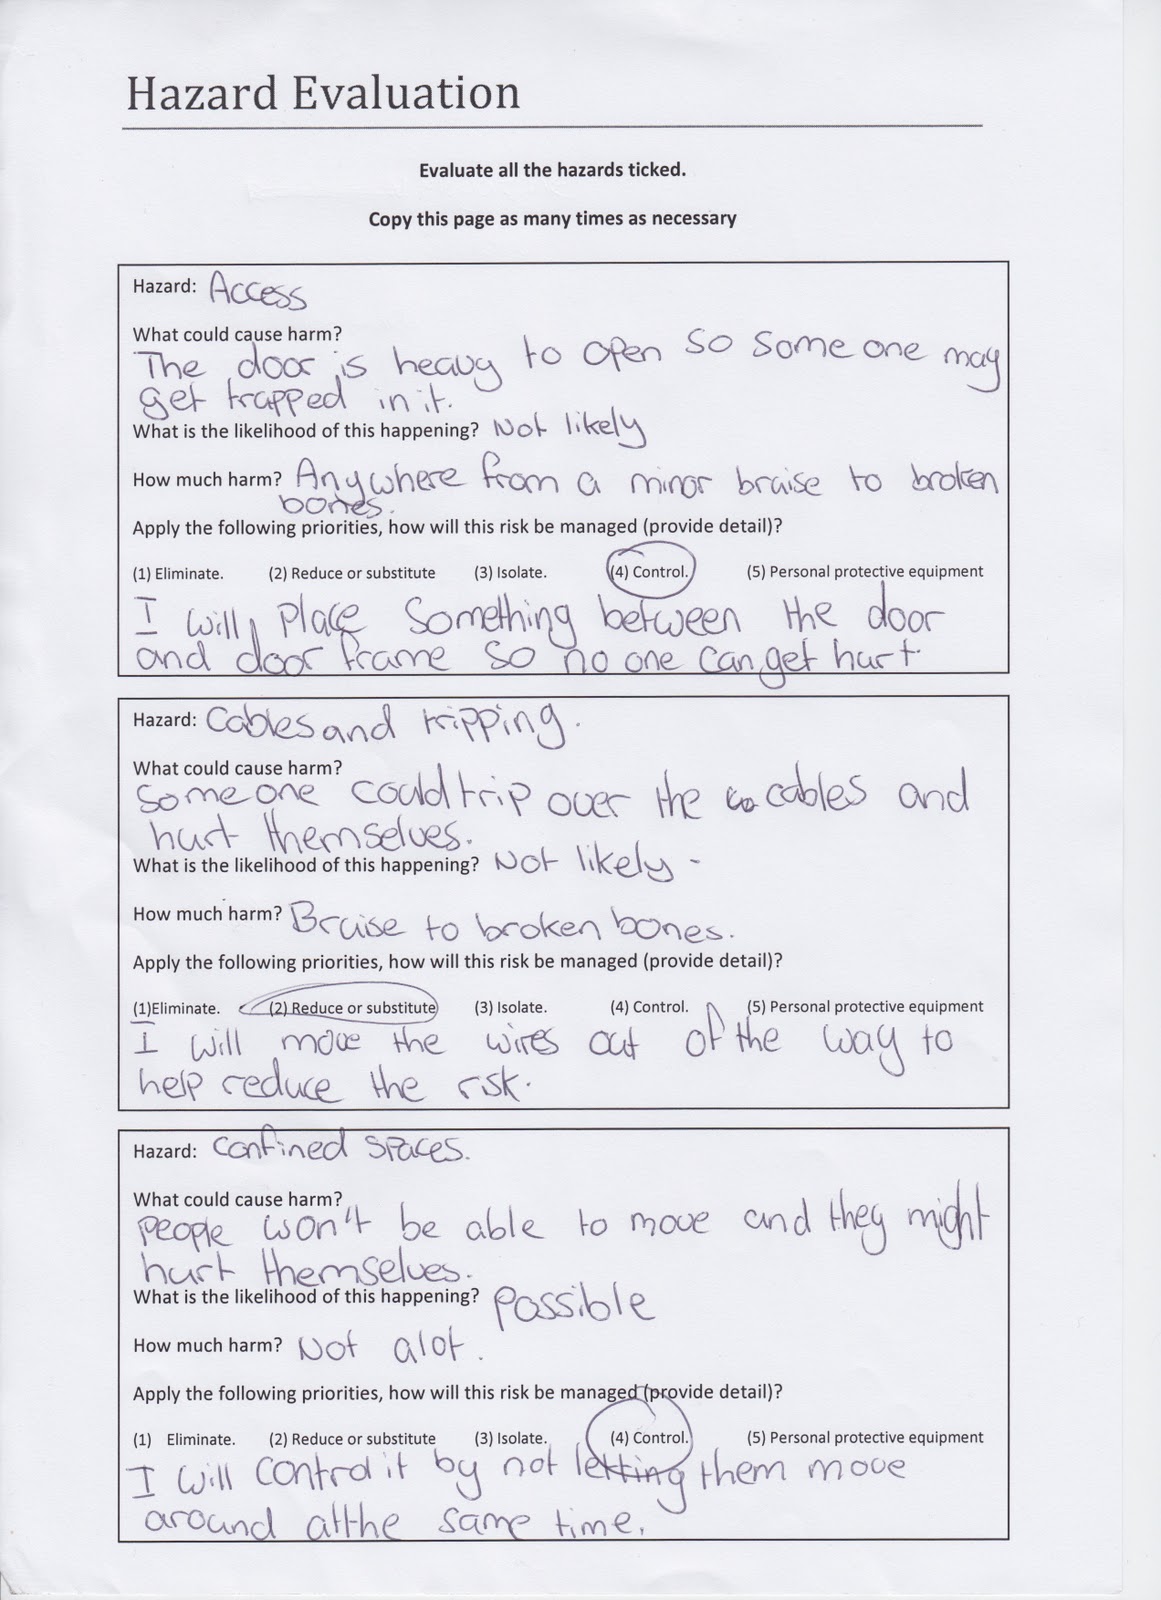 Hazard Evaluation
Evaluate all the hazards ticked.
Copy this page as many times as necessary
Hazard: Access
What could cause harm?
The door is heavy to open so some one may
get trapped in it.
What is the likelihood of this happening? Not likely
How much harm? Anywhere from a minor braise to broken
bones.
Apply the following priorities, how will this risk be managed (provide detail)?
(1) Eliminate. (2) Reduce or substitute (3) Isolate. (4) Control. (5) Personal protective equipment
I will place something between the door
and door frame so no one can get hurt.
Hazard: Cables and tripping.
What could cause harm?
Some one could trip over the cables and
hurt themselves.
What is the likelihood of this happening? Not likely -
How much harm? Braise to broken bones.
Apply the following priorities, how will this risk be managed (provide detail)?
(1)Eliminate. (2) Reduce or substitute (3) Isolate. (4) Control. (5) Personal protective equipment
I will move the wires out of the way to
help reduce the risk.
Hazard: Confined spaces.
What could cause harm?
People won't be able to move and they might
hurt themselves.
What is the likelihood of this happening? Possible
How much harm? Not alot.
Apply the following priorities, how will this risk be managed (provide detail)?
(1) Eliminate. (2) Reduce or substitute (3) Isolate. (4) Control. (5) Personal protective equipment
I will control it by not letting them move
around at the same time.